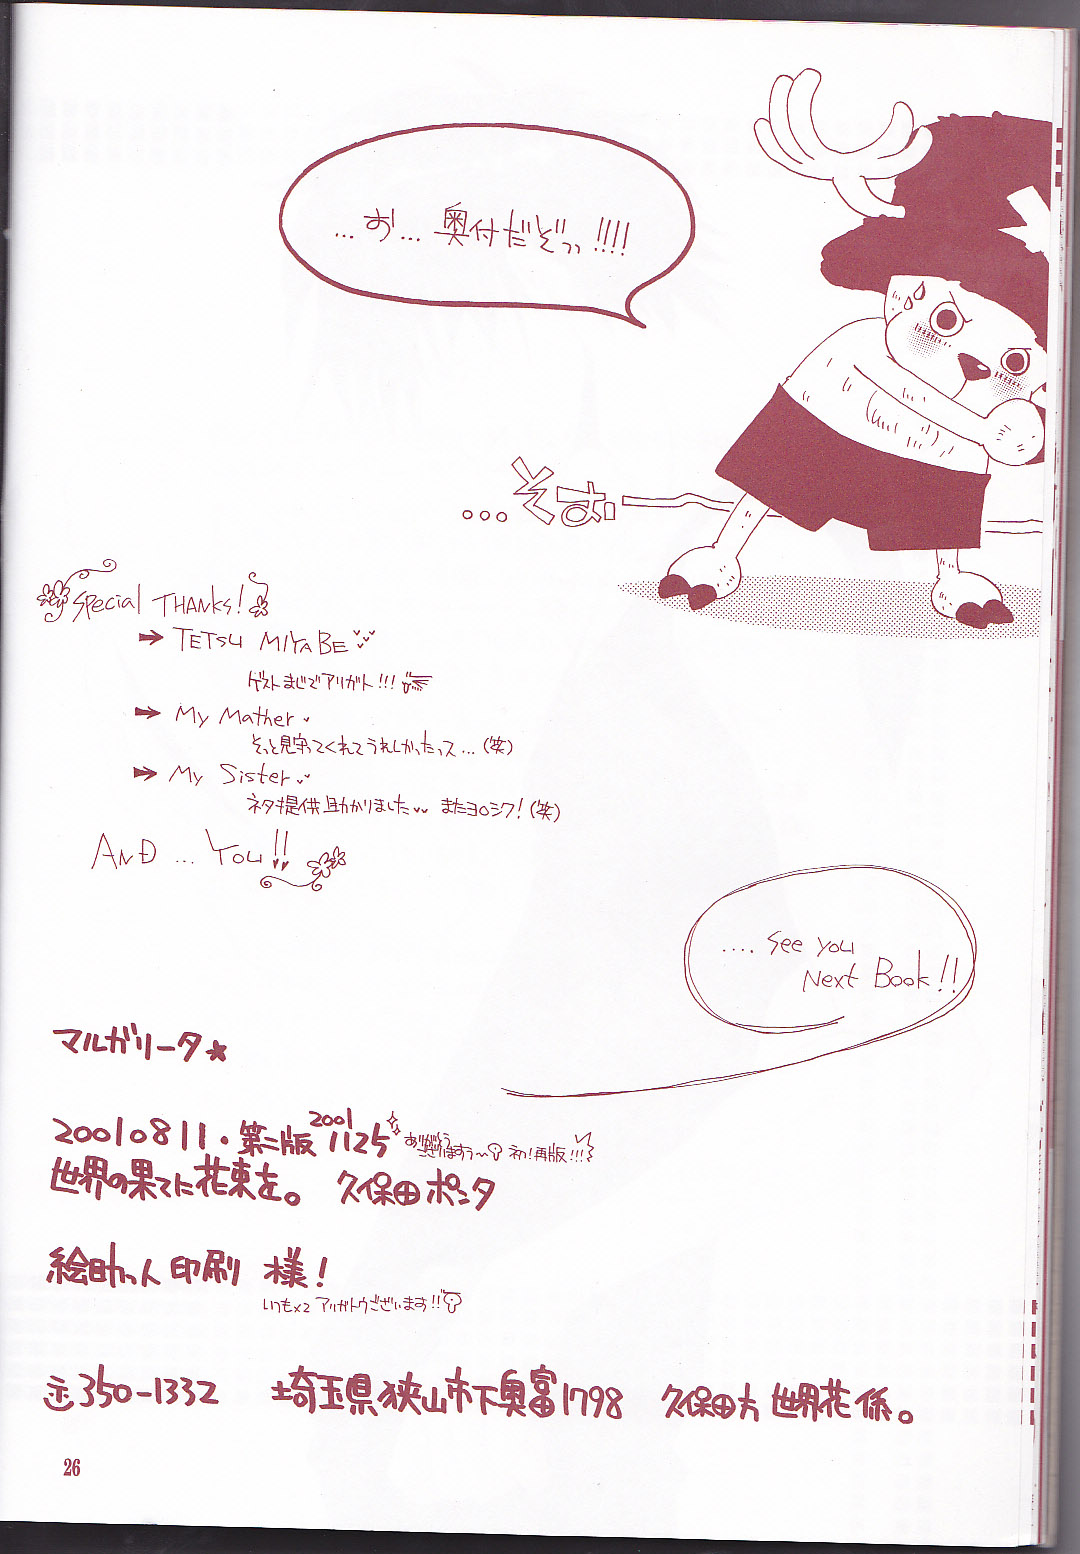 …お…奥付だぞっっ!!!!
...そぉ
Special THANKS!
TETSU MIYABE
ゲストまじでアリガト!!!
My Mather
そっと見守ってくれてうれしかったっス…(笑)
My Sister
ネタ提供助かりました またヨロシク!(笑)
AND ... You!!
.... See you
Next Book!!
マルガリータ★
20010811・第二版 2001 1125 ありがとうございますぅ〜 初!再版!!!
世界の果てに花束を。 久保田ポンタ
絵助っ人印刷 様!
いつも×2 アリガトウございます!!
〒350-1332 埼玉県狭山市下奥富1798 久保田方 世界花係。
26